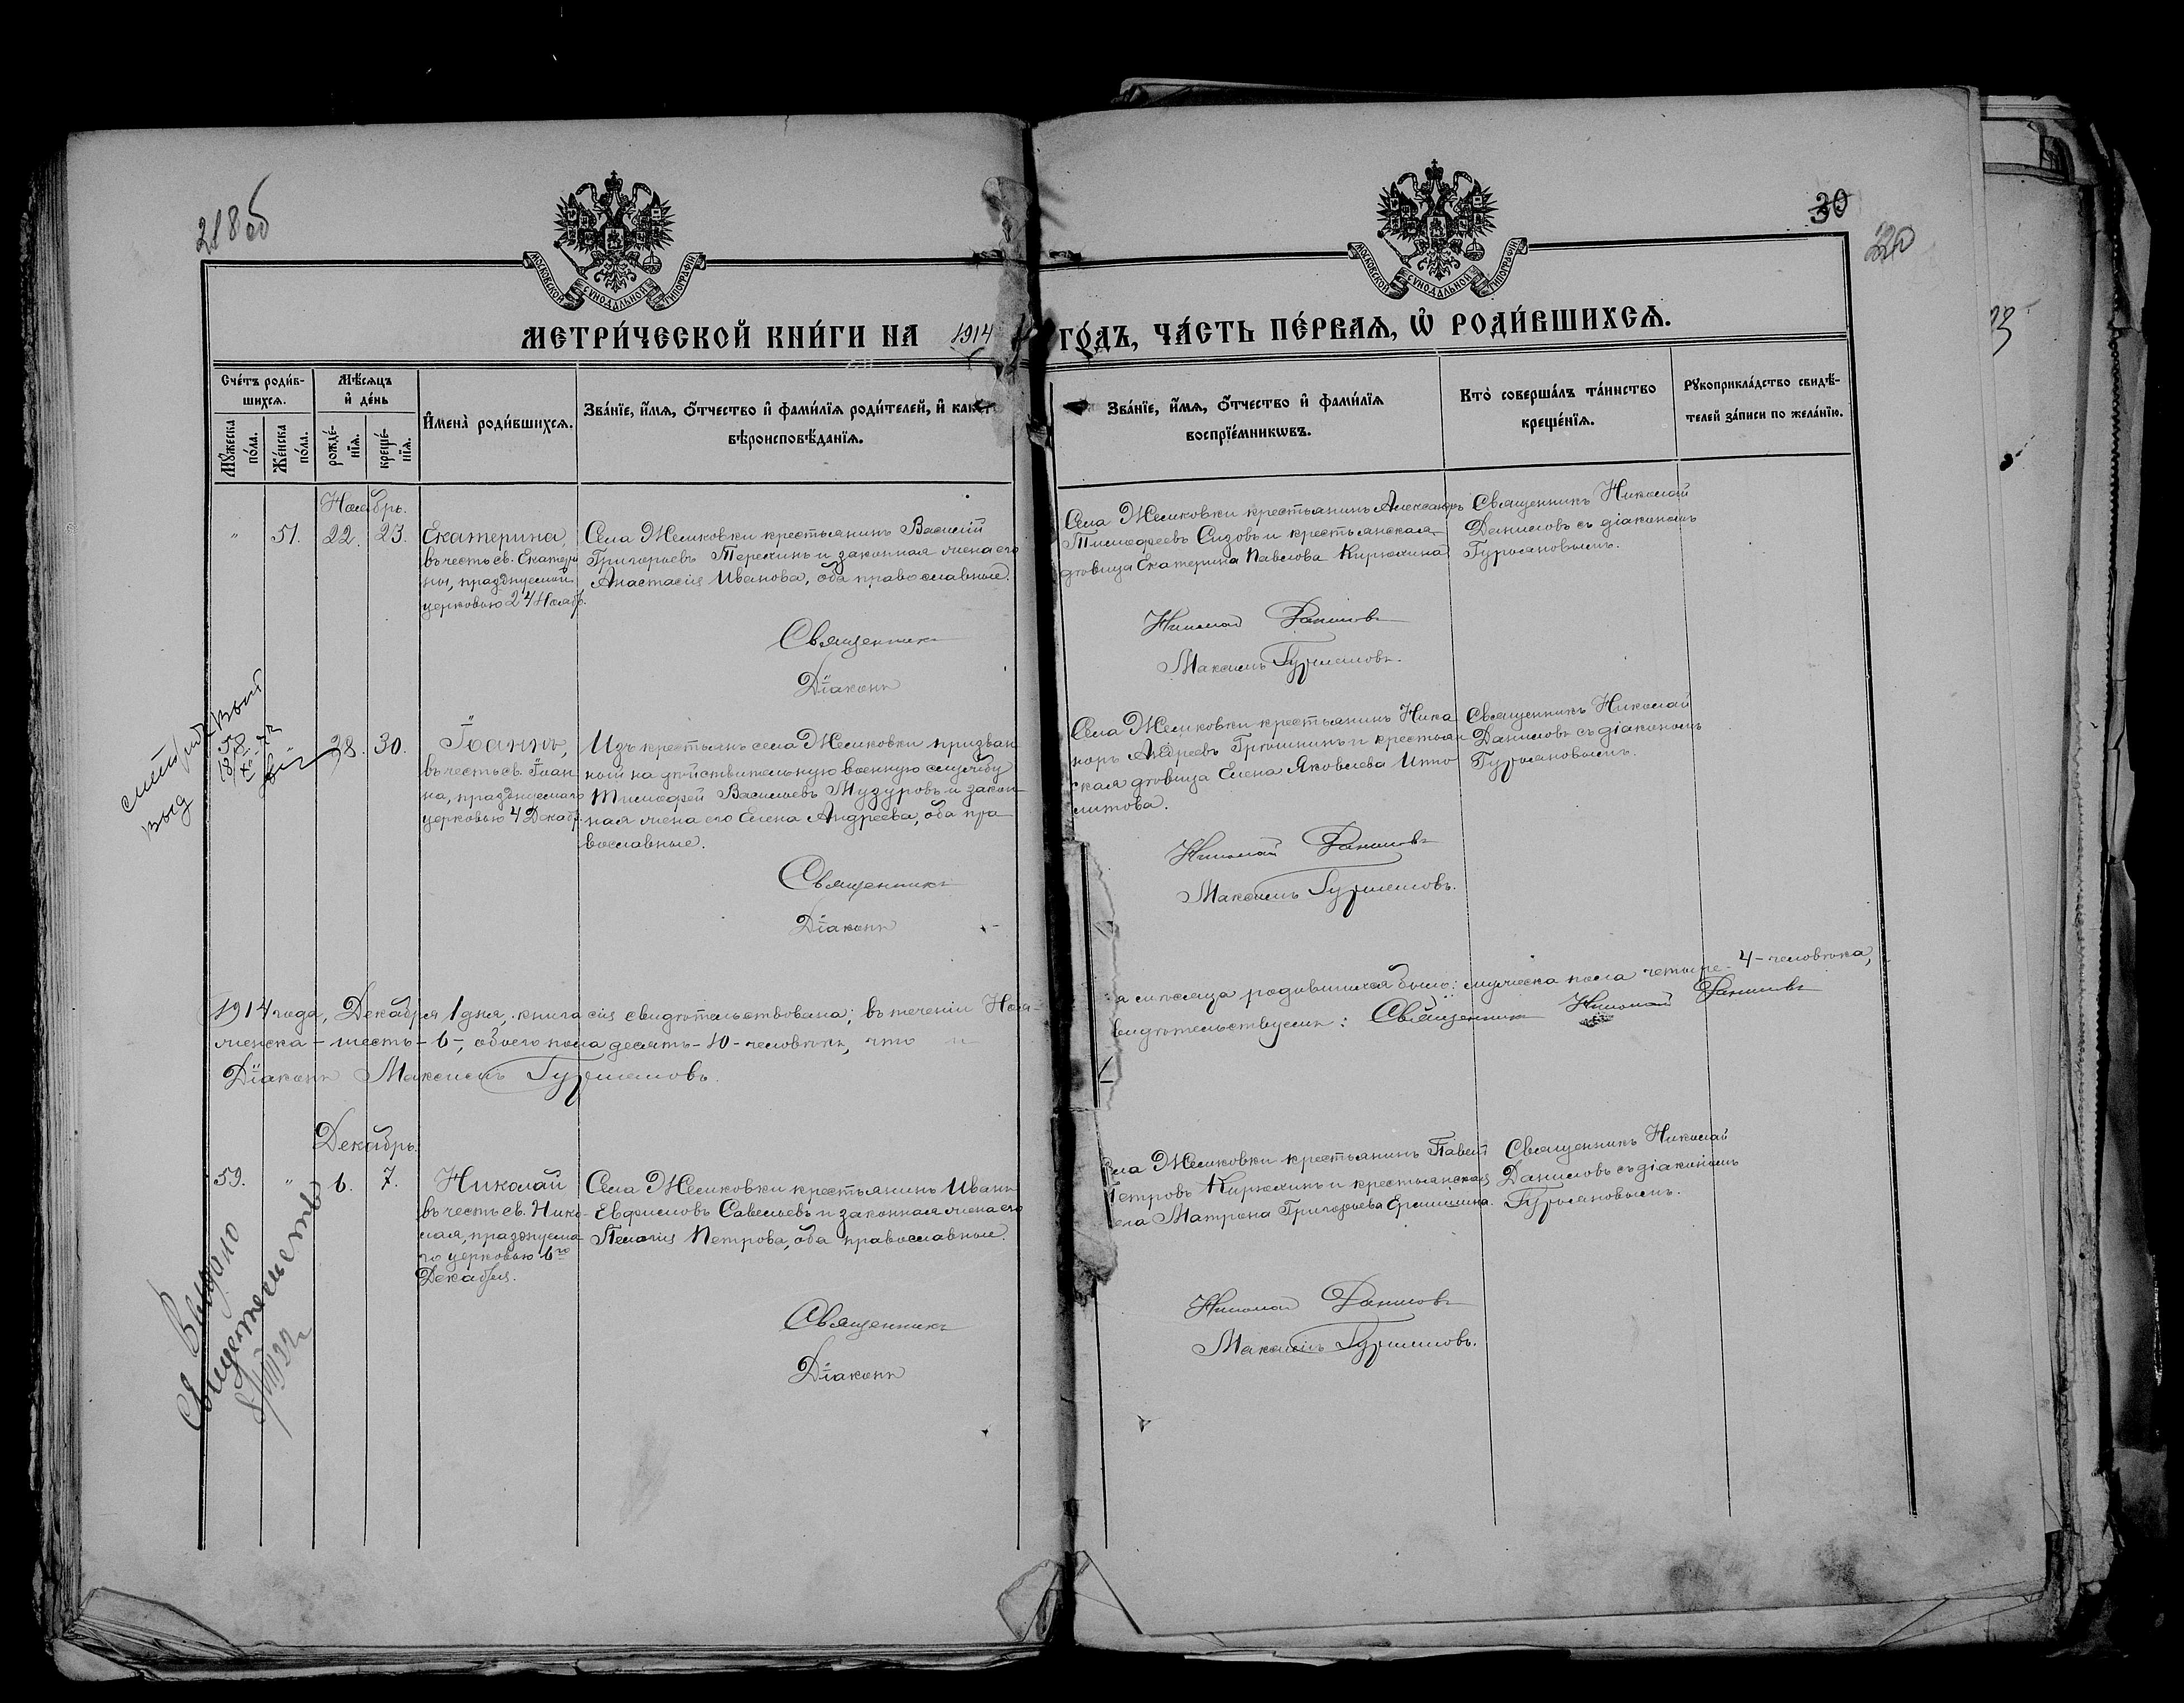 218об
30
220
МОСКОВСКОЙ СѴНОДАЛЬНОЙ ТИПОГРАФІИ
МОСКОВСКОЙ СѴНОДАЛЬНОЙ ТИПОГРАФІИ
МЕТРИ́ЧЕСКОЙ КНИ́ГИ НА 1914 ГО́ДЪ, ЧА́СТЬ ПЕ́РВАЯ, Ѡ҆ РОДИ́ВШИХСЯ.
Сче́тъ роди́в-
шихся.
Мꙋ́жеска по́ла.
Же́нска по́ла.
Мѣ́сяцъ
и҆ де́нь
рожде́-
нїя.
креще́-
нїя.
И҆мена̀ роди́вшихся.
Зва́нїе, и҆́мя, ѻ҆́тчество и҆ фами́лїя роди́телей, и҆ како́й
вѣроисповѣ́данїя.
Зва́нїе, и҆́мя, ѻ҆́тчество и҆ фами́лїя
воспрїе́мникѡвъ.
Кто̀ соверша́лъ та́инство
креще́нїя.
Рꙋкоприкла́дство свидѣ́-
телей за́писи по жела́нїю.
Ноябрь.
" 51. 22. 23.
Екатерина,
въ честь св. Екатери
ны, празднуемой
церковью 24 Нояб.
Села Желиковки крестьянинъ Василій
Григорьевъ Терехинъ и законная жена его
Анастасія Иванова, оба православные.
Села Желиковки крестьянинъ Александръ
Тимофеевъ Сизовъ и крестьянская
дѣвица Екатерина Павлова Кирюхина
Священникъ Николай
Даниловъ съ діакономъ
Гурьяновымъ.
Священникъ Николай Даниловъ
Діаконъ Максимъ Гурьяновъ.
58 " 28. 30.
Іоаннъ,
въ честь св. Іоан
на, празднуемаго
церковью 4 Декаб.
Изъ крестьянъ села Желиковки призван
ный на дѣйствительную военную службу
Тимофей Васильевъ Музуровъ и закон-
ная жена его Елена Андреева, оба пра
вославные.
Села Желиковки крестьянинъ Ника
норъ Андреевъ Гришнинъ и крестьян
ская дѣвица Елена Яковлева Иппо
литова.
Священникъ Николай
Даниловъ съ діакономъ
Гурьяновымъ.
Священникъ Николай Даниловъ
Діаконъ Максимъ Гурьяновъ.
1914 года, Декабря 1 дня, книга сія свидѣтельствована; въ теченіи Нояб-
я мѣсяца родившихся было: мужеска пола четыре - 4 - человѣка,
женска - шесть - 6 -, обоего пола десять - 10 - человѣкъ, что и
видѣтельствуемъ: Священникъ Николай Даниловъ
Діаконъ Максимъ Гурьяновъ.
Декабрь.
59. " 6. 7.
Николай
въ честь св. Нико-
лая, празднуема
го церковью 6го
Декабря.
Села Желиковки крестьянинъ Иванъ
Евфимовъ Савельевъ и законная жена его
Пелагія Петрова, оба православные.
ела Желиковки крестьянинъ Павелъ
Петровъ Кирюхинъ и крестьянская
Матрона Григорьева
Священникъ Николай
Даниловъ съ діакономъ
Гурьяновымъ.
Священникъ Николай Даниловъ
Діаконъ Максимъ Гурьяновъ.
Выдано
Свидетельство